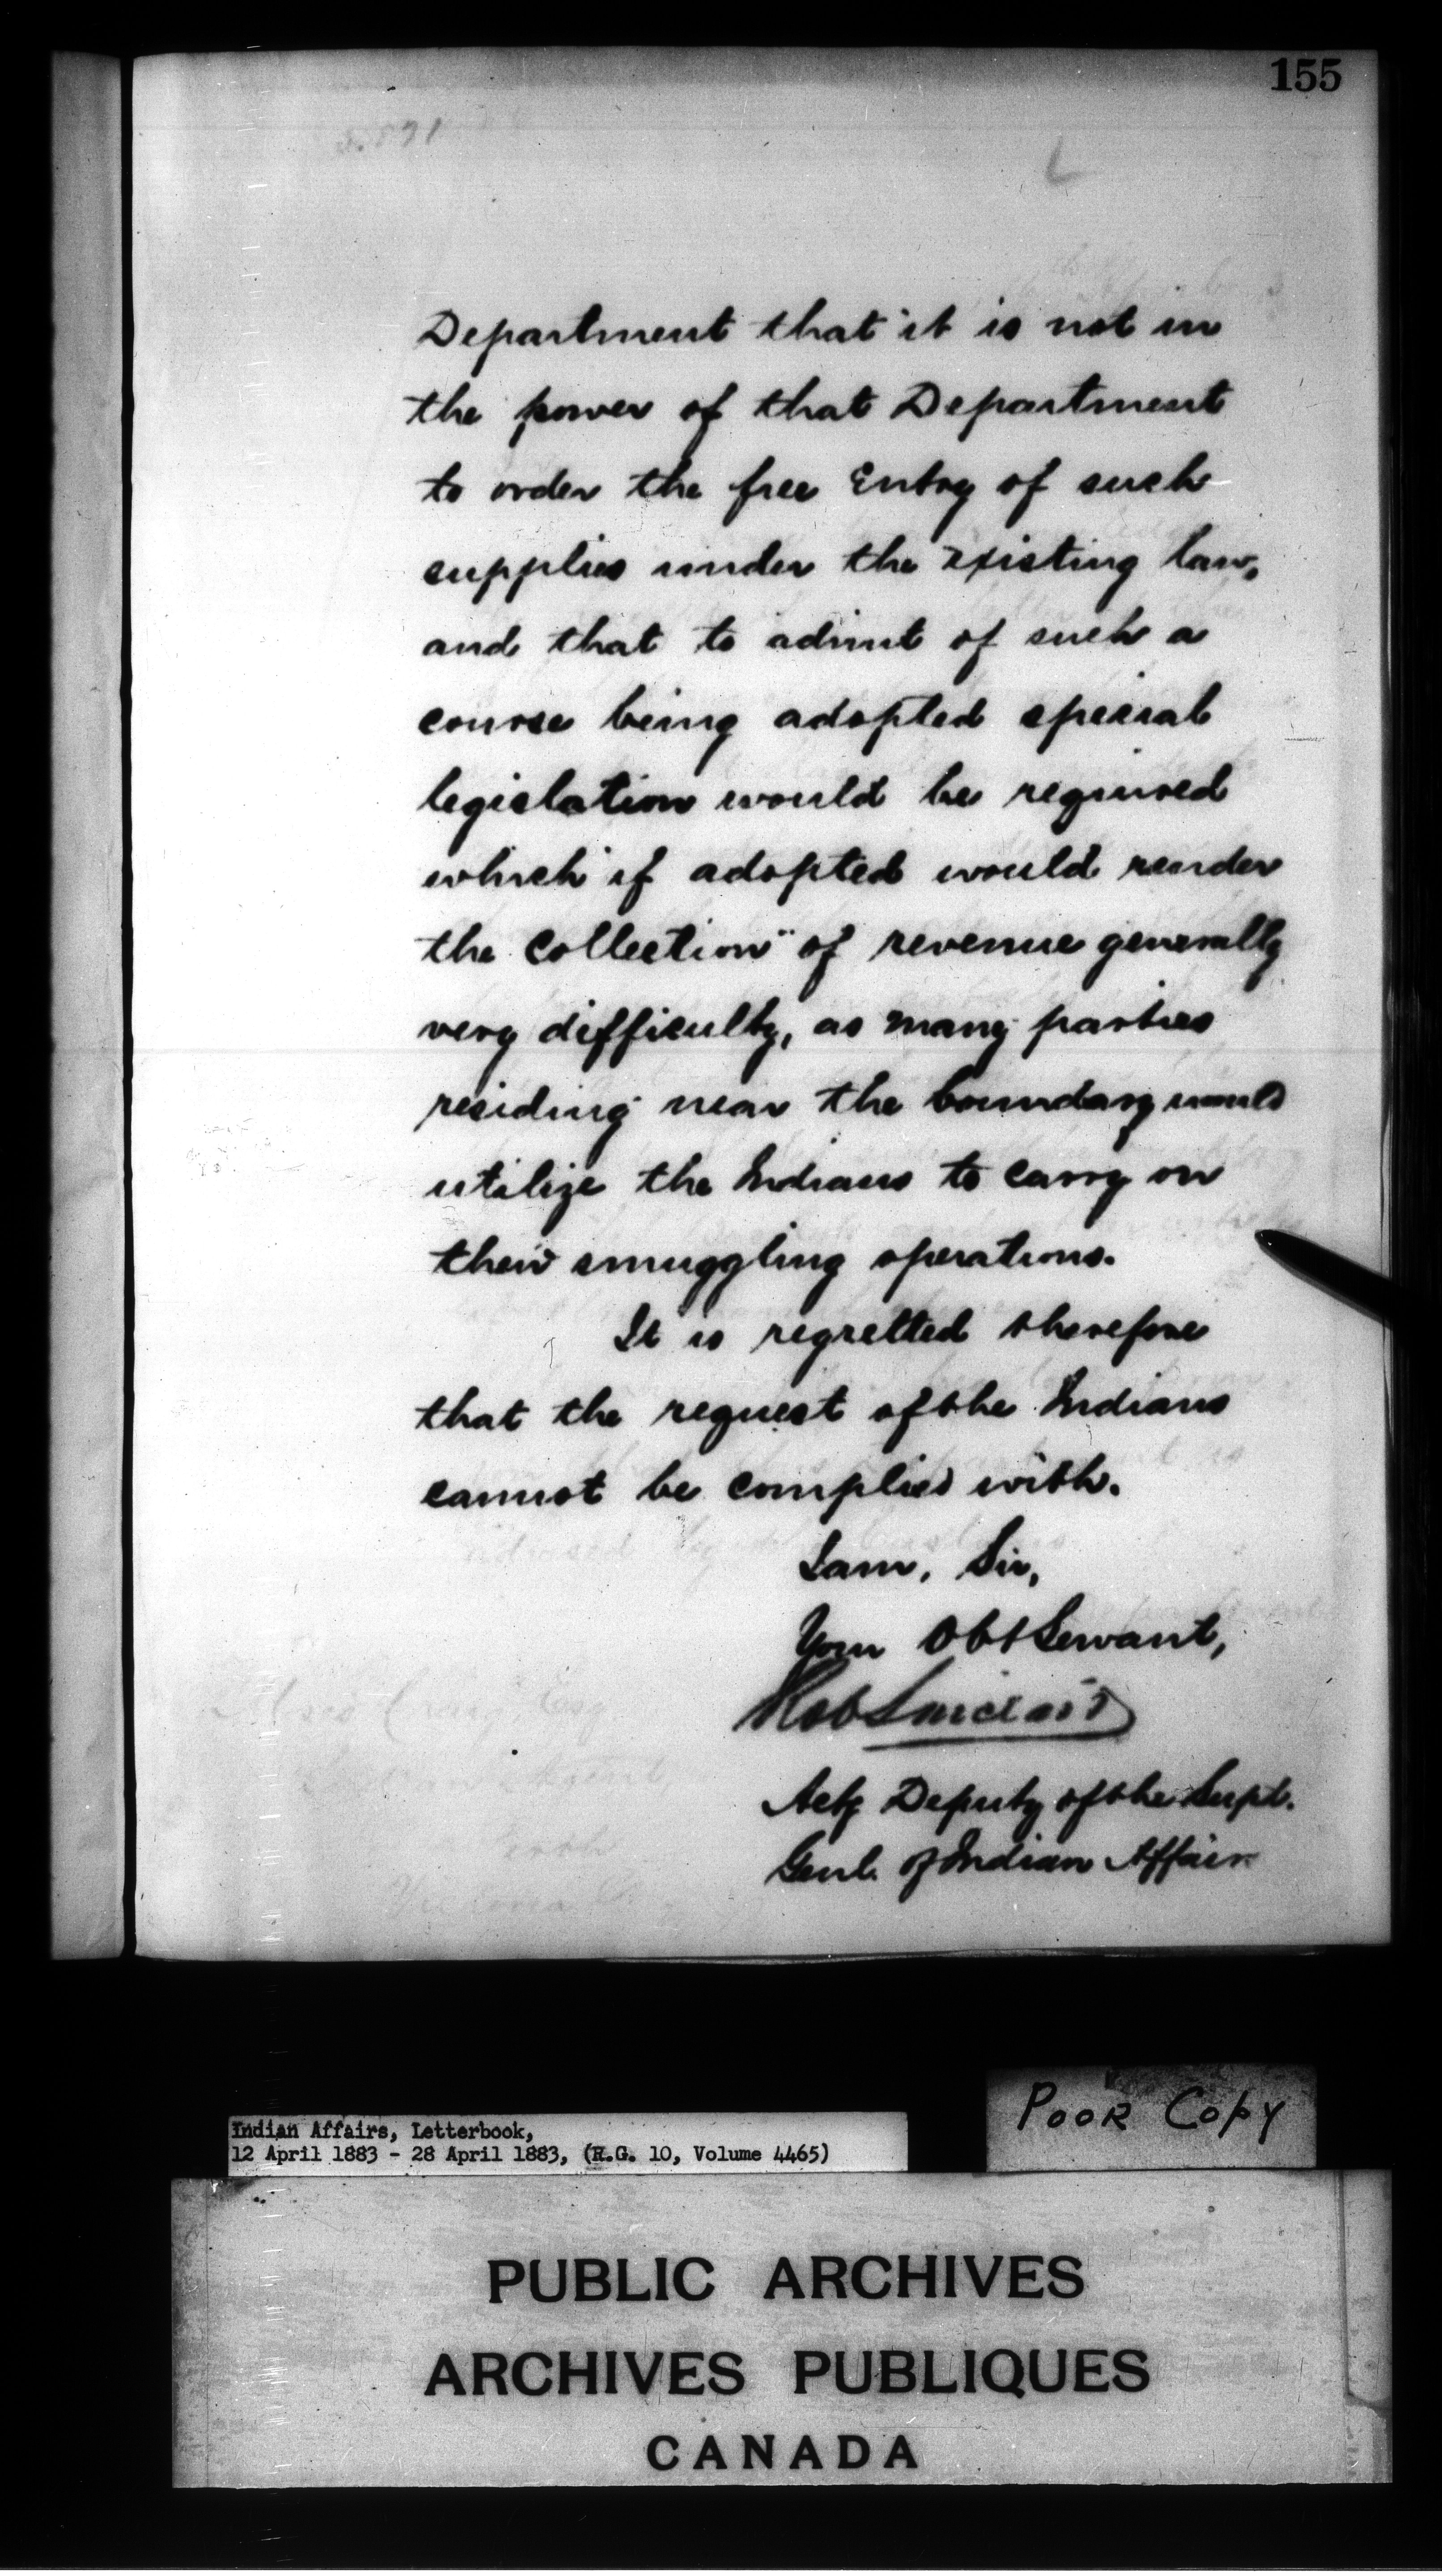 155
L
Department that it is not in
the power of that Department
to order the free Entry of such
supplies under the existing law,
and that to admit of such a
course being adopted special
legislation would be required
which if adopted would render
the collection of revenue generally
very difficulty, as many parties
residing near the boundary would
utilize the Indians to carry on
their smuggling operations.
It is regretted therefore
that the request of the Indians
cannot be complied with.
I am, Sir,
Your Obt Servant,
Rob Sinclair
Actg Deputy of the Supt.
Genl. of Indian Affairs
Poor Copy
Indian Affairs, Letterbook,
12 April 1883 - 28 April 1883, (R.G. 10, Volume 4465)
PUBLIC ARCHIVES
ARCHIVES PUBLIQUES
CANADA